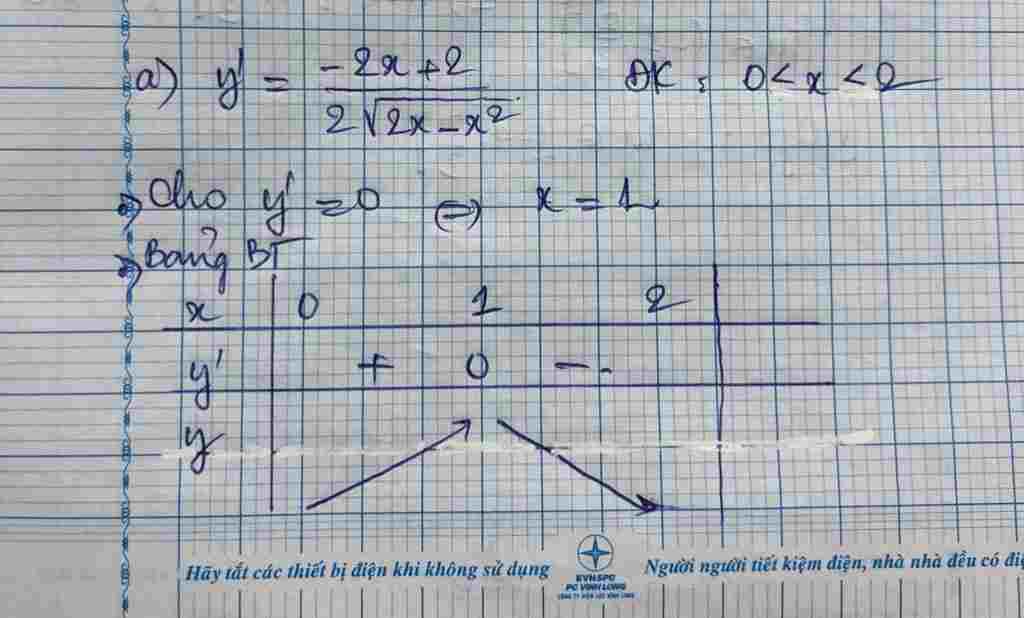 a) y' = (-2x+2)/(2√(2x-x²)) ĐK: 0 < x < 2
=> Cho y' = 0 <=> x = 1
=> Bảng BT
x 0 1 2
y' + 0 -
y
Hãy tắt các thiết bị điện khi không sử dụng
EVNSPC
PC VINH LONG
Người người tiết kiệm điện, nhà nhà đều có